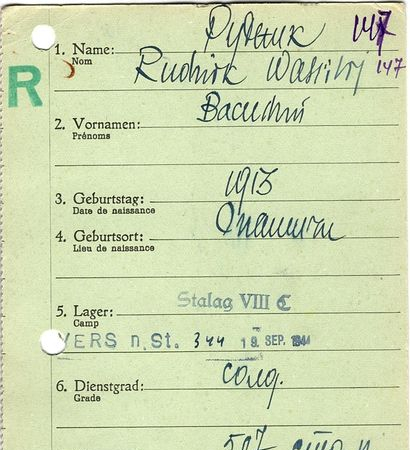 Рудник 147
1. Name: Rudnik Wassilij 147
Nom
R
Василий
2. Vornamen:
Prénoms
3. Geburtstag: 1913
Date de naissance
4. Geburtsort:
Lieu de naissance
5. Lager: Stalag VIII C
Camp
VERS n. St. 344 19. SEP. 1944
6. Dienstgrad: солд.
Grade
507